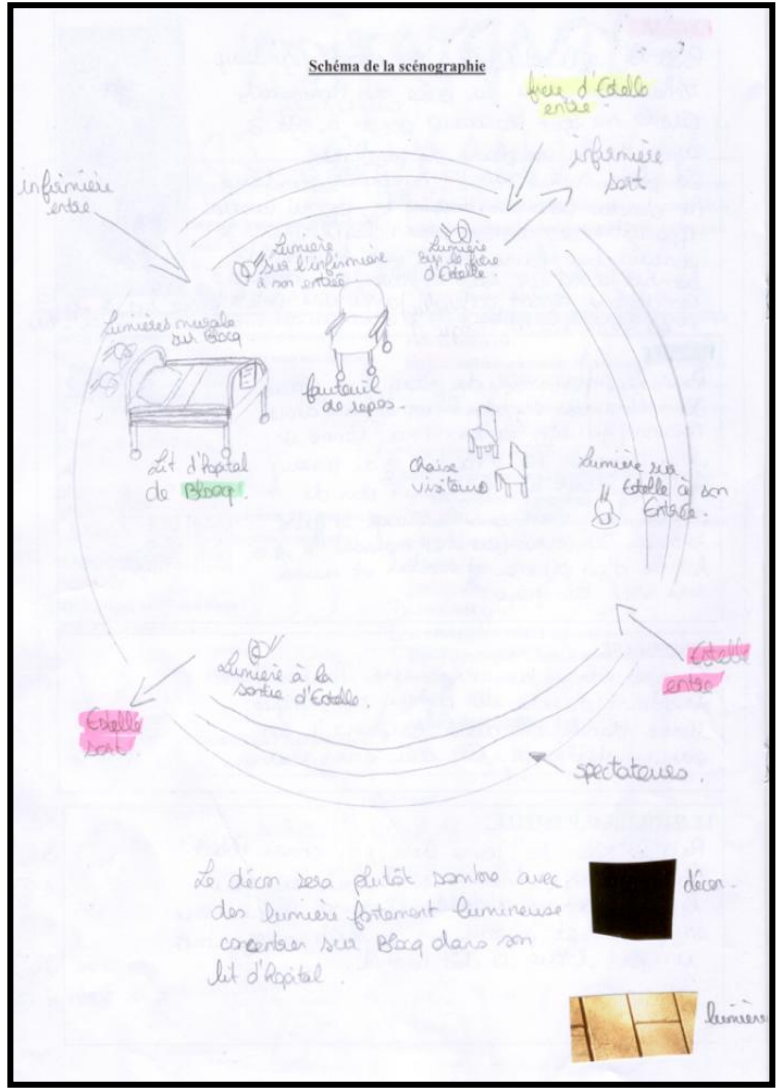 Schéma de la scénographie
frère d'Estelle
entre
infirmière
sort
infirmière
entre
Lumière
sur l'infirmière
à son entrée
Lumière
sur le frère
d'Estelle
Lumières murale
sur Blocq
fauteuil
de repos
Lit d'hopital
de Blocq.
chaise
visiteurs
Lumière sur
Estelle à son
Entrée.
Lumière à la
sortie d'Estelle.
Estelle
entre
Estelle
sort
spectateurs.
Le décor sera plutôt sombre avec
des lumière fortement lumineuse
concentrer sur Blocq dans son
lit d'hopital.
décor.
lumière